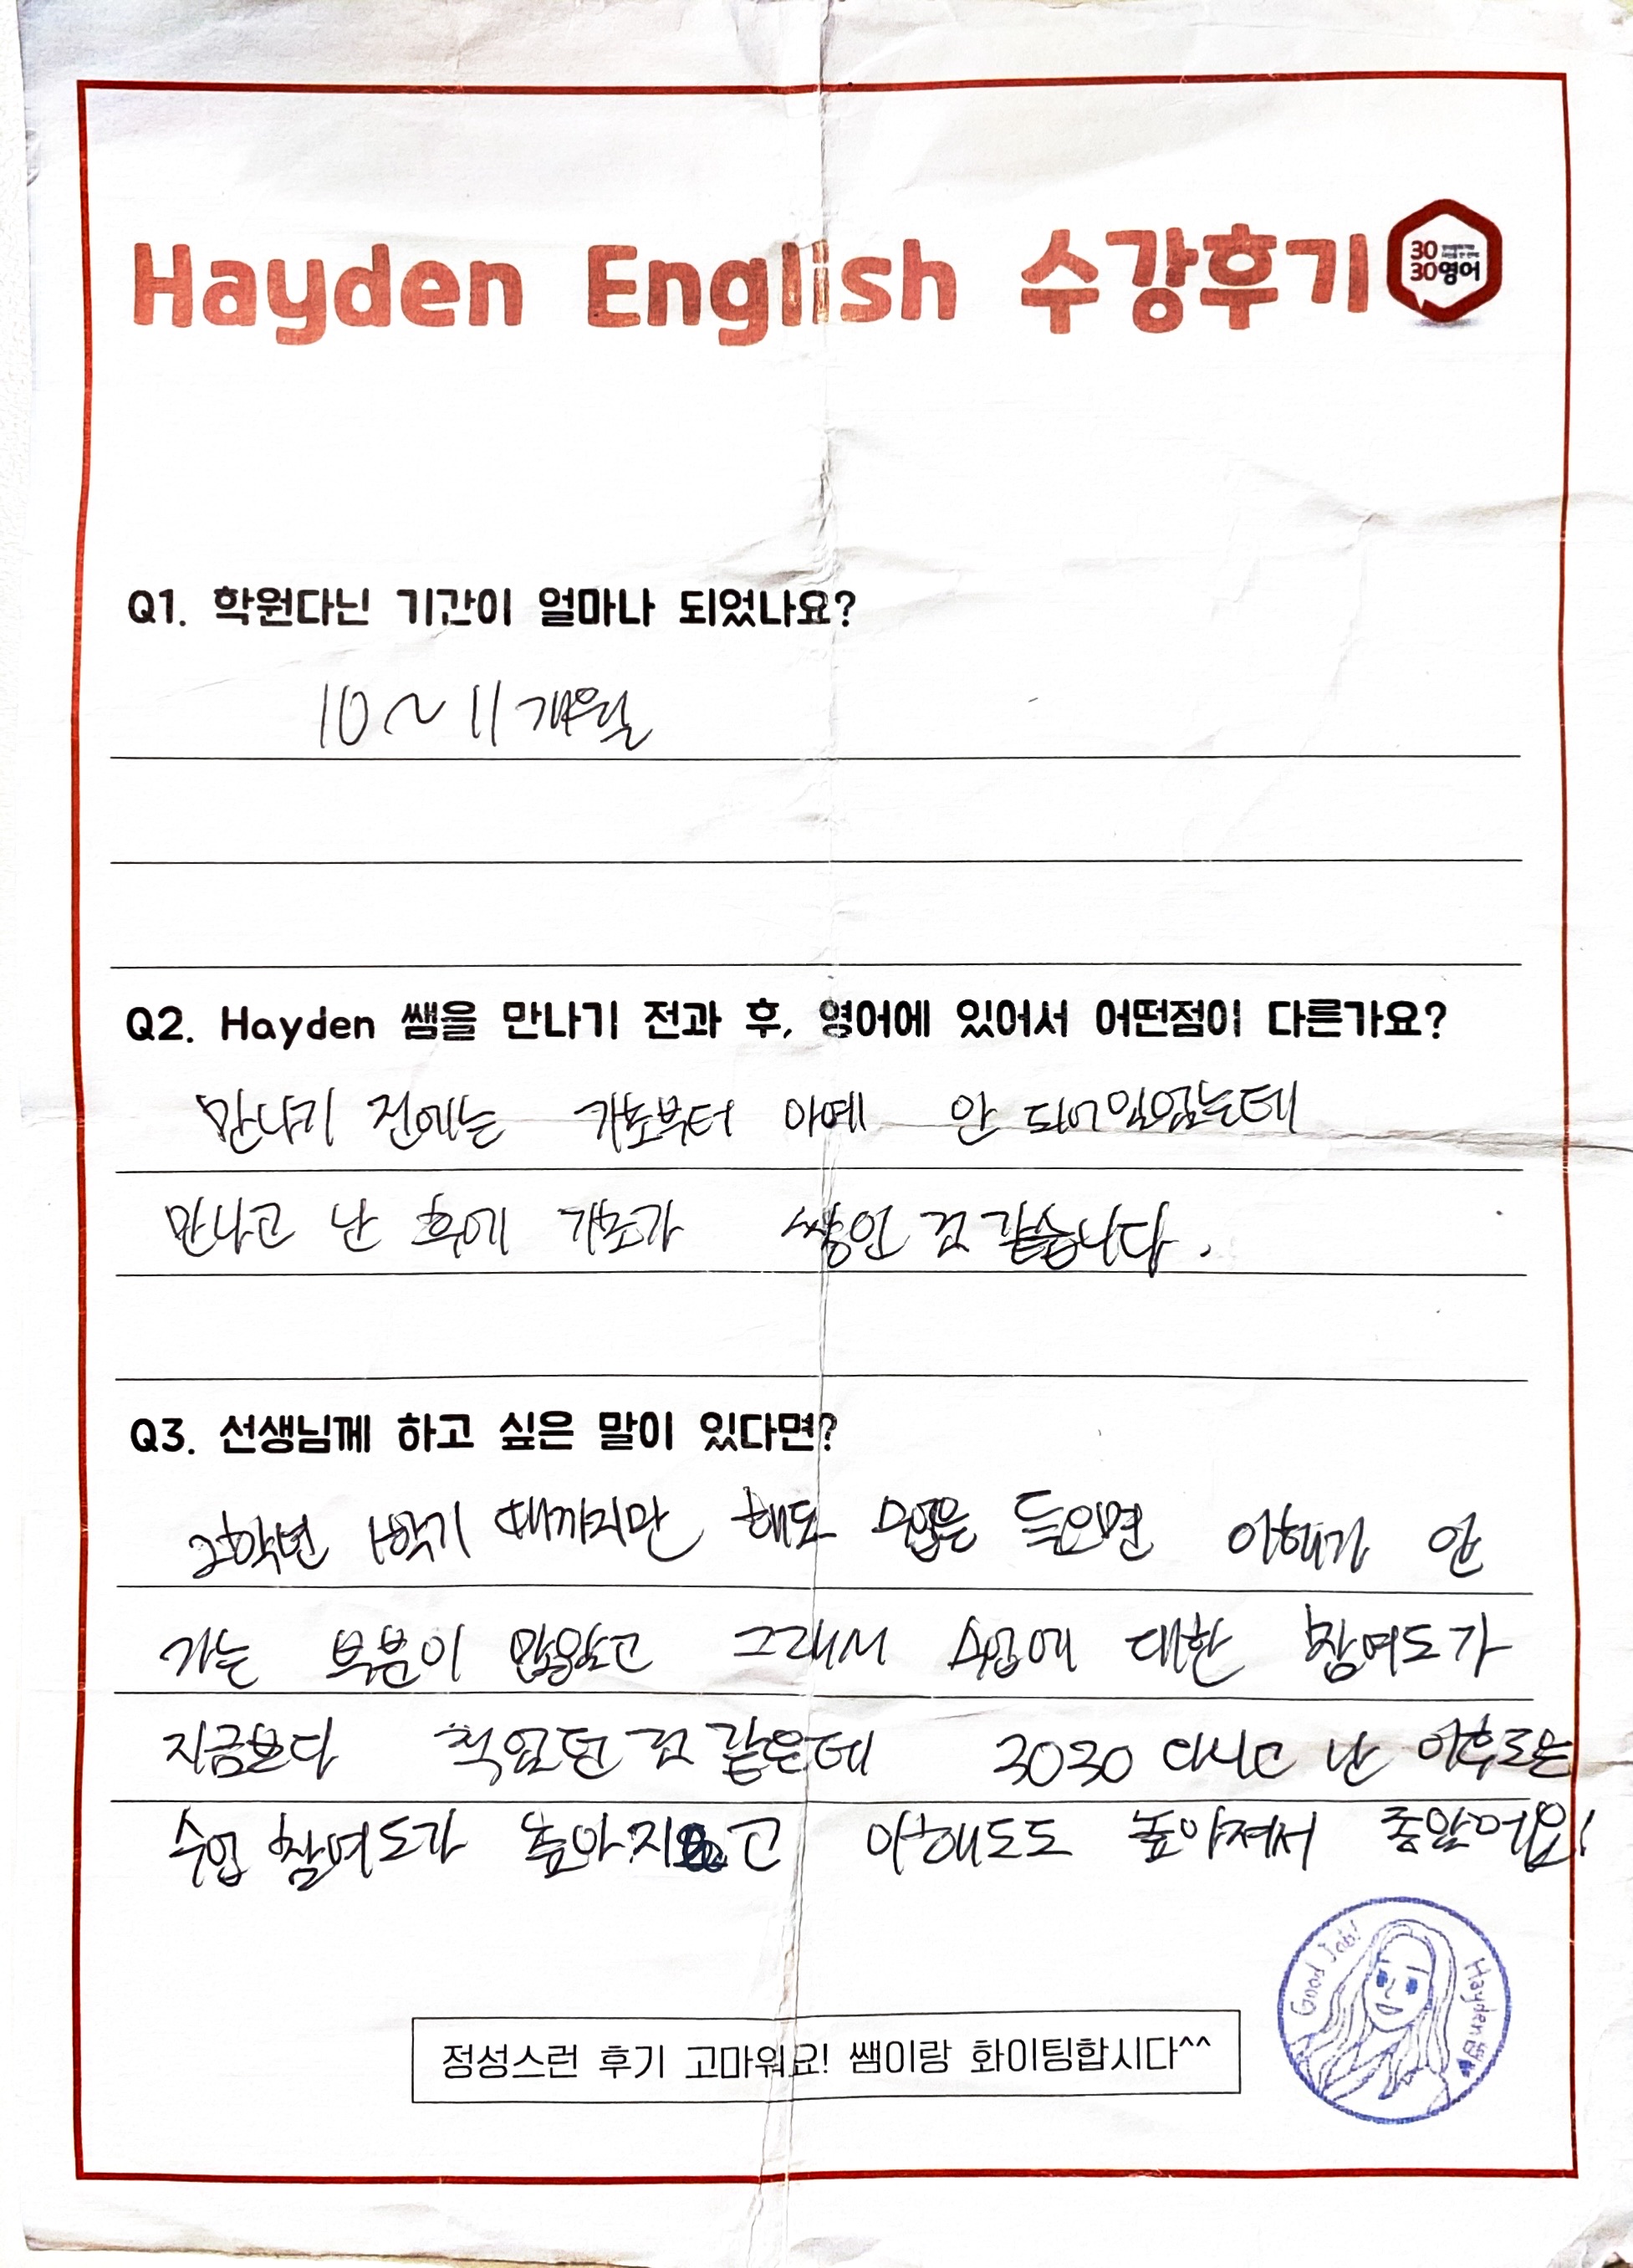 Hayden English 수강후기
30
30영어
Q1. 학원다닌 기간이 얼마나 되었나요?
10~11개월
Q2. Hayden 쌤을 만나기 전과 후, 영어에 있어서 어떤점이 다른가요?
만나기 전에는 기초부터 아예 안 되어있었는데
만나고 난 후에 기초가 쌓인 것 같습니다.
Q3. 선생님께 하고 싶은 말이 있다면?
2학년 1학기 때까지만 해도 수업을 들으면 이해가 안
가는 부분이 많았고 그래서 수업에 대한 참여도가
지금보다 적었던 것 같은데 3030 다니고 난 이후로는
수업 참여도가 높아지고 이해도도 높아져서 좋았어요!
Good Job!
Hayden쌤
정성스런 후기 고마워요! 쌤이랑 화이팅합시다^^